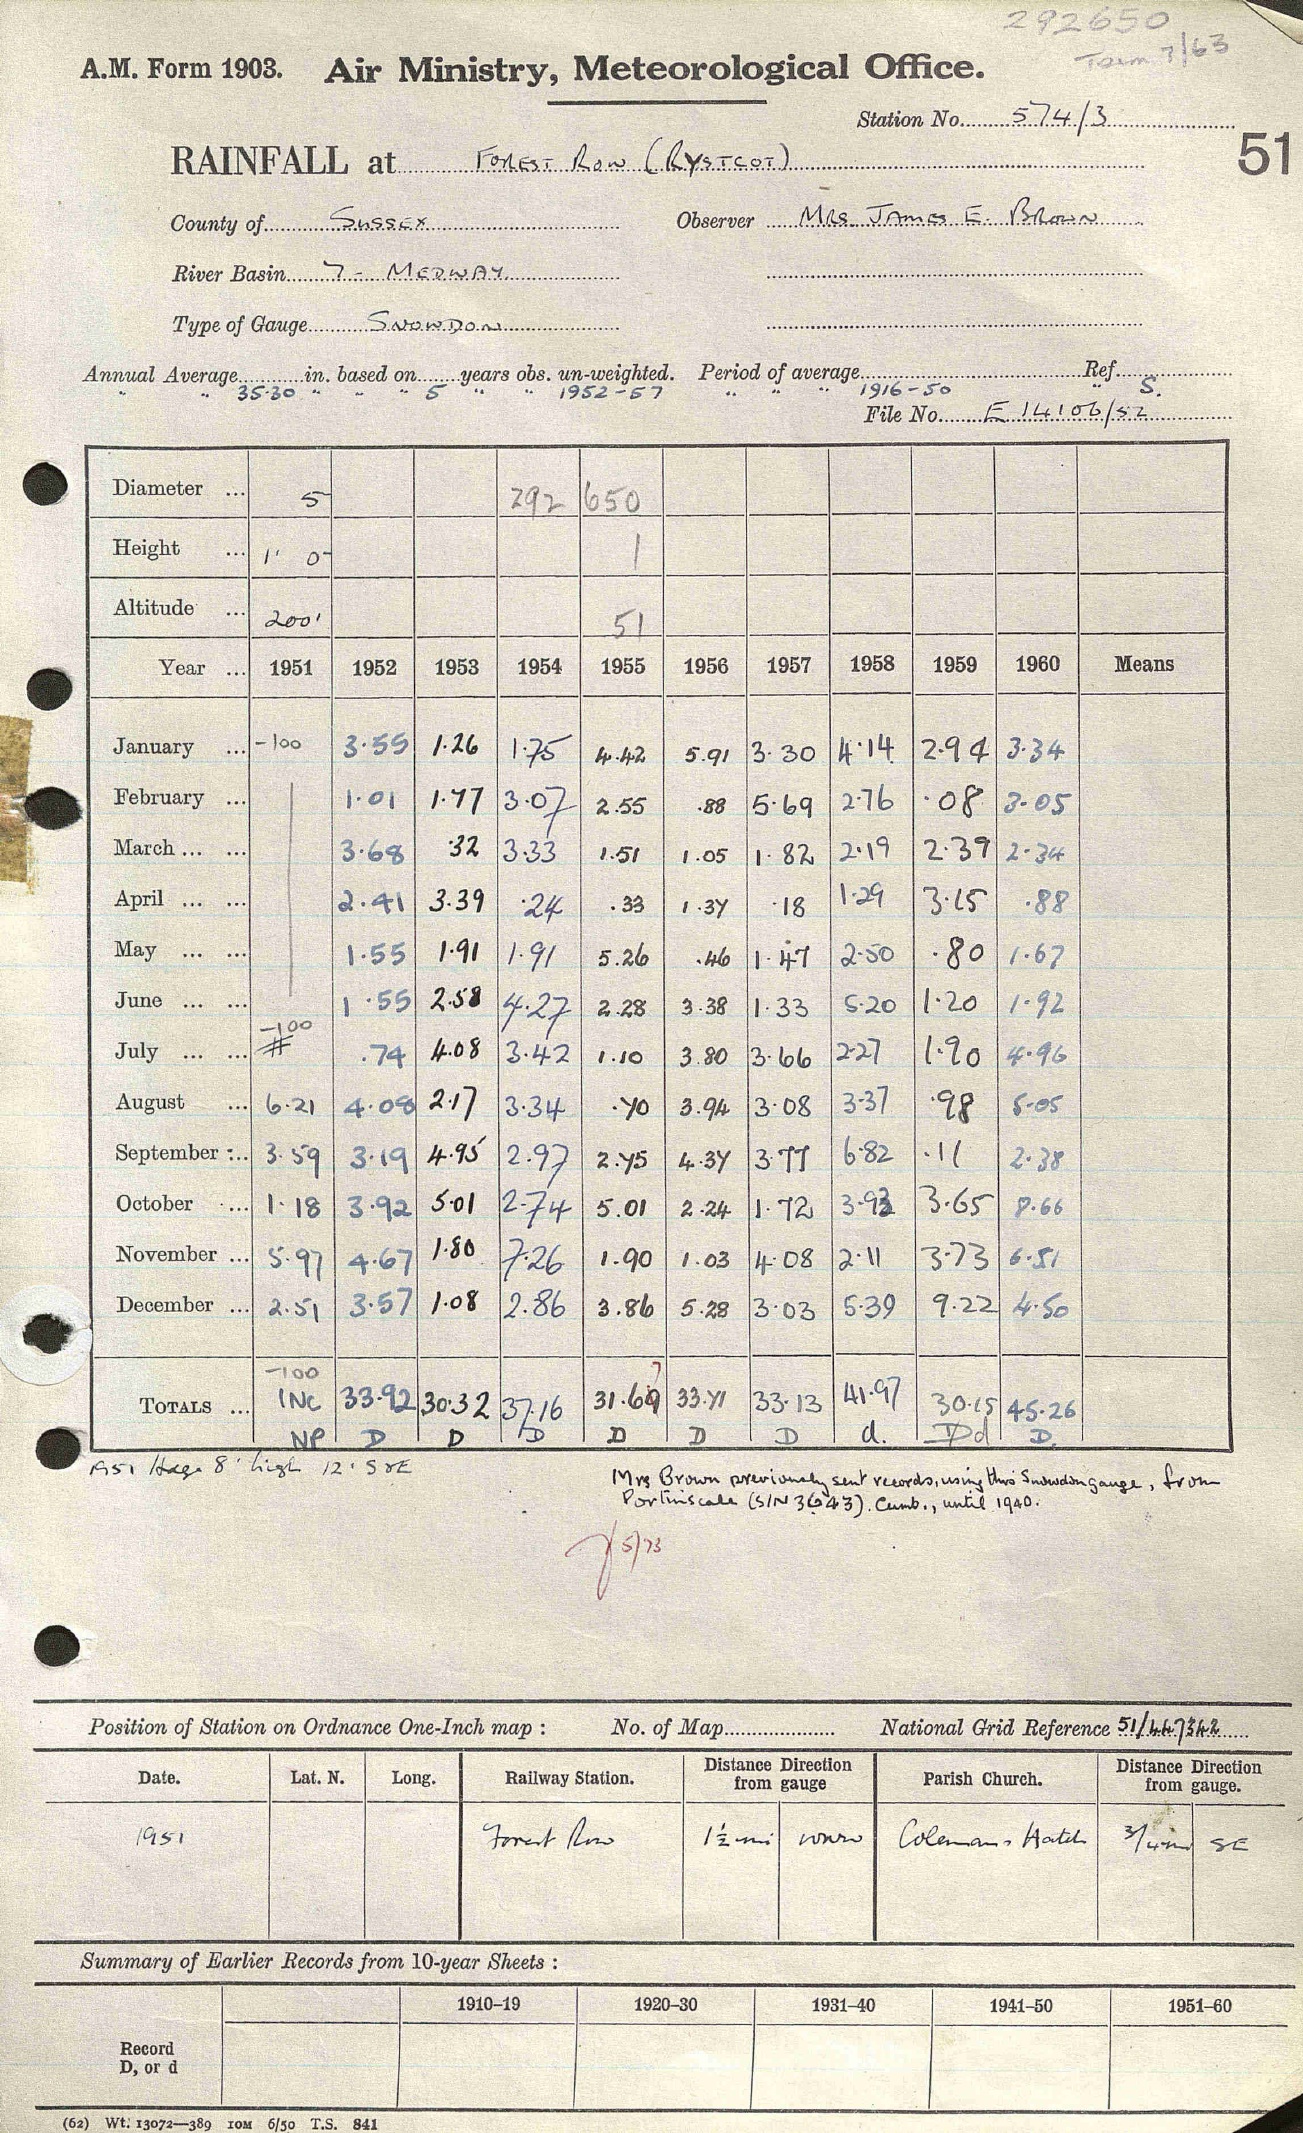 292650
Term 7/63
A.M. Form 1903. Air Ministry, Meteorological Office.
Station No. 574/3
51
RAINFALL at FOREST ROW (RYSTCOT)
County of SUSSEX Observer MRS. JAMES E. BROWN
River Basin 7 - MEDWAY
Type of Gauge SNOWDON
Annual Average in. based on years obs. un-weighted. Period of average Ref.
" " 35.30 " " " 5 " " 1952-57 " " " 1916-50 " S.
File No. E 14106/52
Diameter ... 5 292 650
Height ... 1' 0" 1
Altitude ... 200' 51
Year ... 1951 1952 1953 1954 1955 1956 1957 1958 1959 1960 Means
January ... -100 3.55 1.26 1.75 4.42 5.91 3.30 4.14 2.94 3.34
February ... 1.01 1.77 3.07 2.55 .88 5.69 2.76 .08 3.05
March ... ... 3.68 .32 3.33 1.51 1.05 1.82 2.19 2.39 2.34
April ... ... 2.41 3.39 .24 .33 1.37 .18 1.29 3.15 .88
May ... ... 1.55 1.91 1.91 5.26 .46 1.47 2.50 .80 1.67
June ... ... 1.55 2.58 4.27 2.28 3.38 1.33 5.20 1.20 1.92
-100
July ... ... # .74 4.08 3.42 1.10 3.80 3.66 2.27 1.90 4.96
August ... 6.21 4.08 2.17 3.34 .70 3.94 3.08 3.37 .98 5.05
September ... 3.59 3.19 4.95 2.97 2.75 4.37 3.77 6.82 .11 2.38
October ... 1.18 3.92 5.01 2.74 5.01 2.24 1.72 3.93 3.65 8.66
November ... 5.97 4.67 1.80 7.26 1.90 1.03 4.08 2.11 3.73 6.51
December ... 2.51 3.57 1.08 2.86 3.86 5.28 3.03 5.39 9.22 4.50
-100 7
TOTALS ... INC 33.92 30.32 37.16 31.69 33.71 33.13 41.97 30.15 45.26
NP D D D D D D d. D d D.
1951 Hedge 8' high 12' S & E
Mrs Brown previously sent records, using this Snowdon gauge, from
Portinscale (S/N 3643). Cumb., until 1940.
5/73
Position of Station on Ordnance One-Inch map : No. of Map National Grid Reference 51/447342
Date. Lat. N. Long. Railway Station. Distance Direction from gauge Parish Church. Distance Direction from gauge.
1951 Forest Row 1½ mi WNW Colemans Hatch 3/4 mi SE
Summary of Earlier Records from 10-year Sheets :
1910–19 1920–30 1931–40 1941–50 1951–60
Record
D, or d
(62) Wt. 13072—389 10M 6/50 T.S. 841